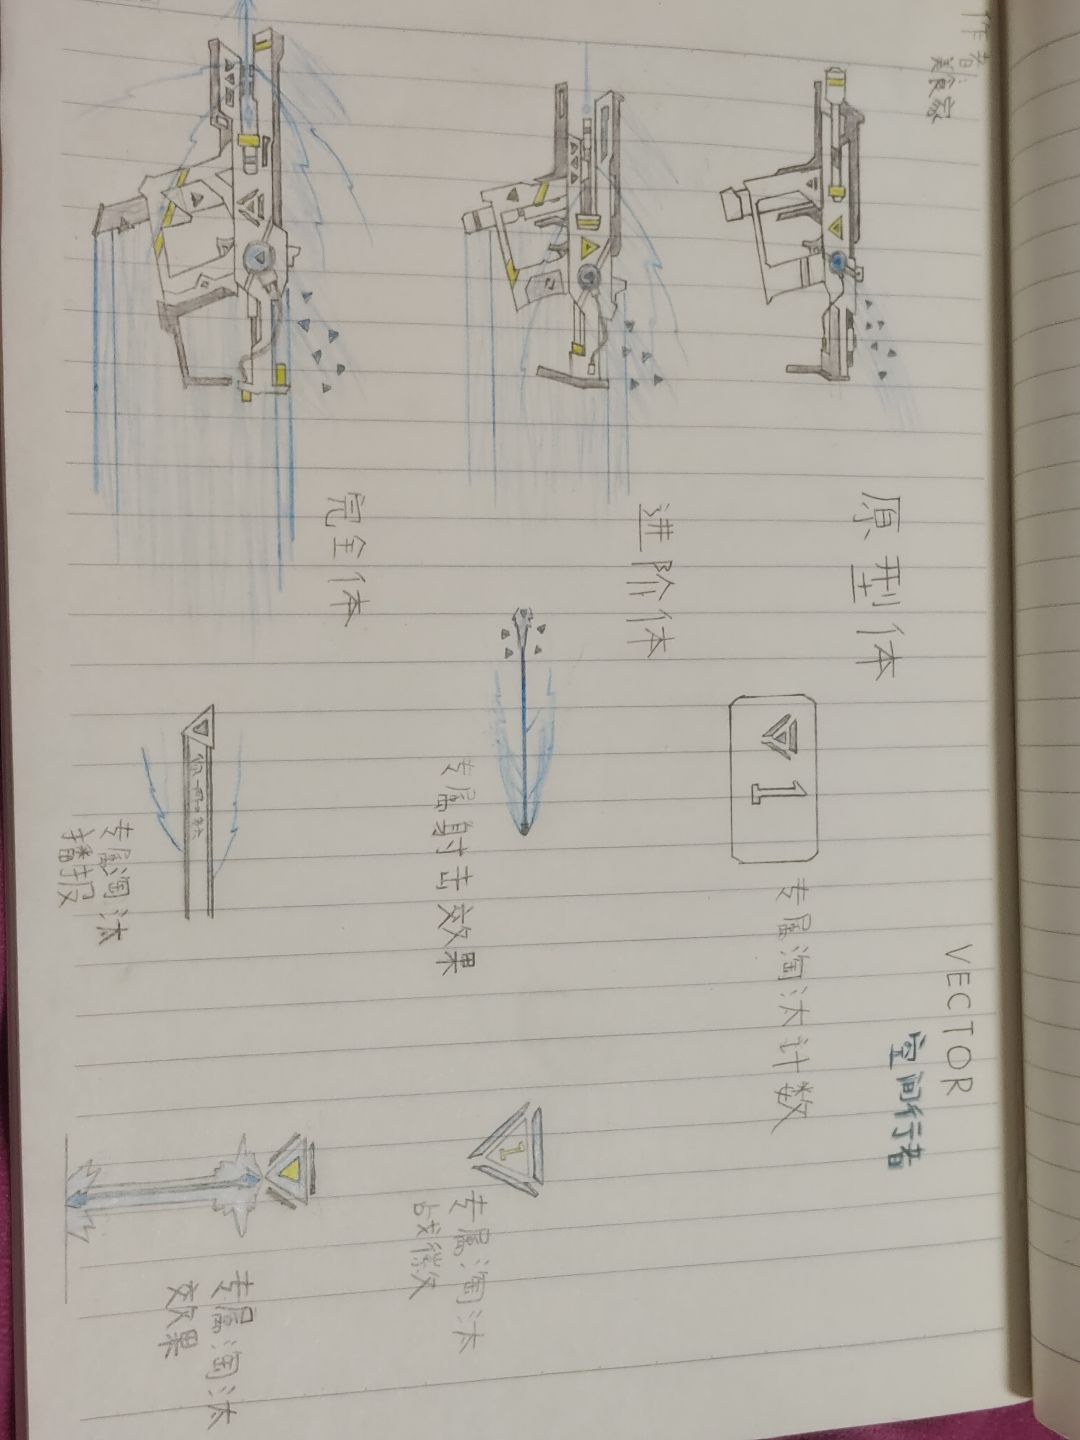 作者:
美食家
VECTOR
空间行者
原型体
1
专属淘汰计数
进阶体
专属射击效果
1
专属淘汰
战徽
完全体
专属淘汰
播报
专属淘汰
效果